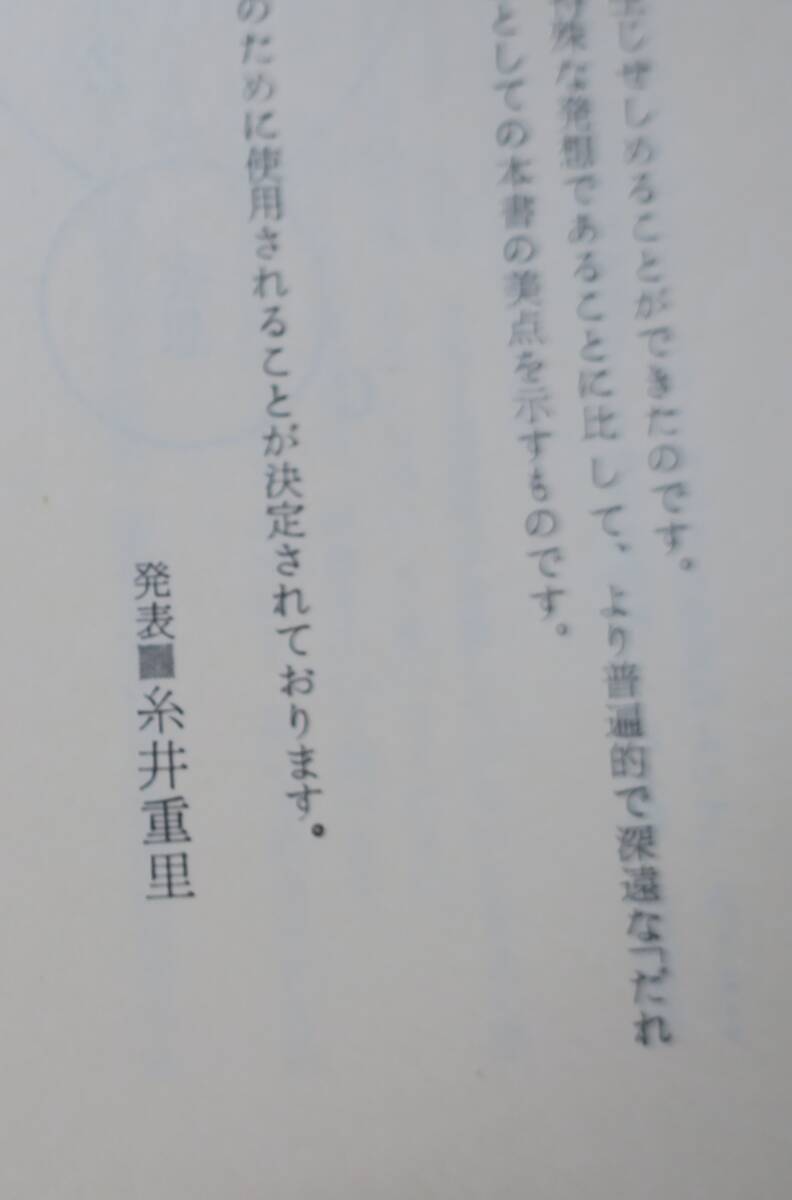 じせしめることができたのです。
殊な発想であることに比して、より普遍的で深遠な「だれ
としての本書の美点を示すものです。
のために使用されることが決定されております。
発表■糸井重里